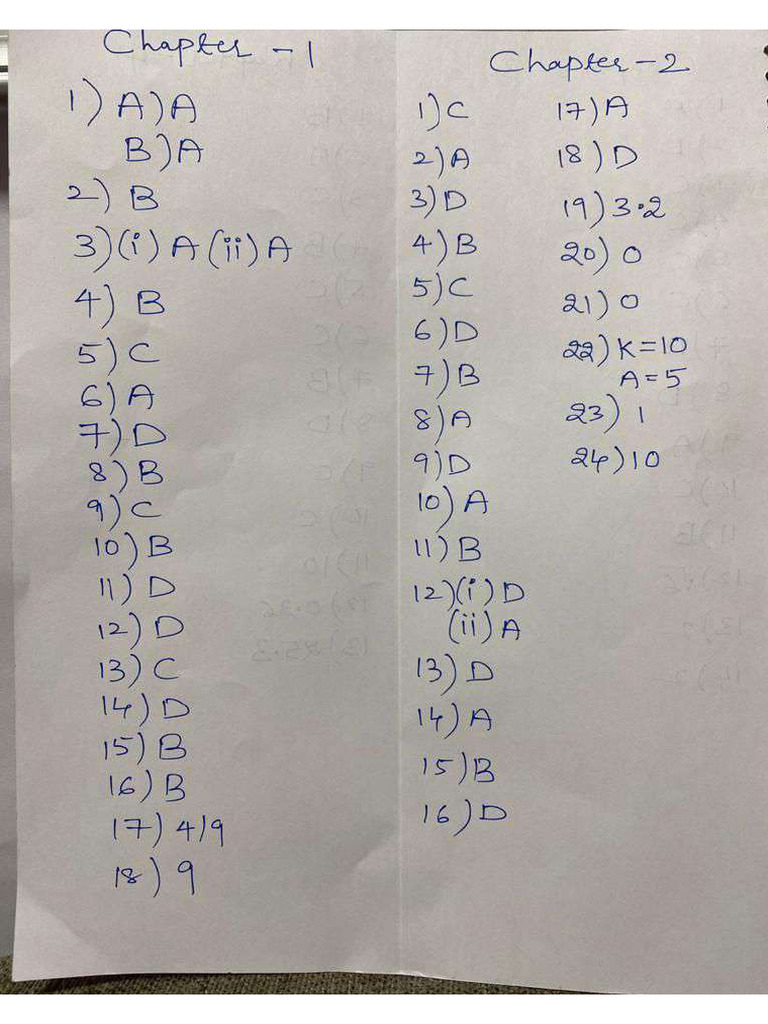 Chapter - 1
1) A) A
B) A
2) B
3) (i) A (ii) A
4) B
5) C
6) A
7) D
8) B
9) C
10) B
11) D
12) D
13) C
14) D
15) B
16) B
17) 4/9
18) 9
Chapter - 2
1) C
2) A
3) D
4) B
5) C
6) D
7) B
8) A
9) D
10) A
11) B
12) (i) D
(ii) A
13) D
14) A
15) B
16) D
17) A
18) D
19) 3.2
20) 0
21) 0
22) K=10
A=5
23) 1
24) 10